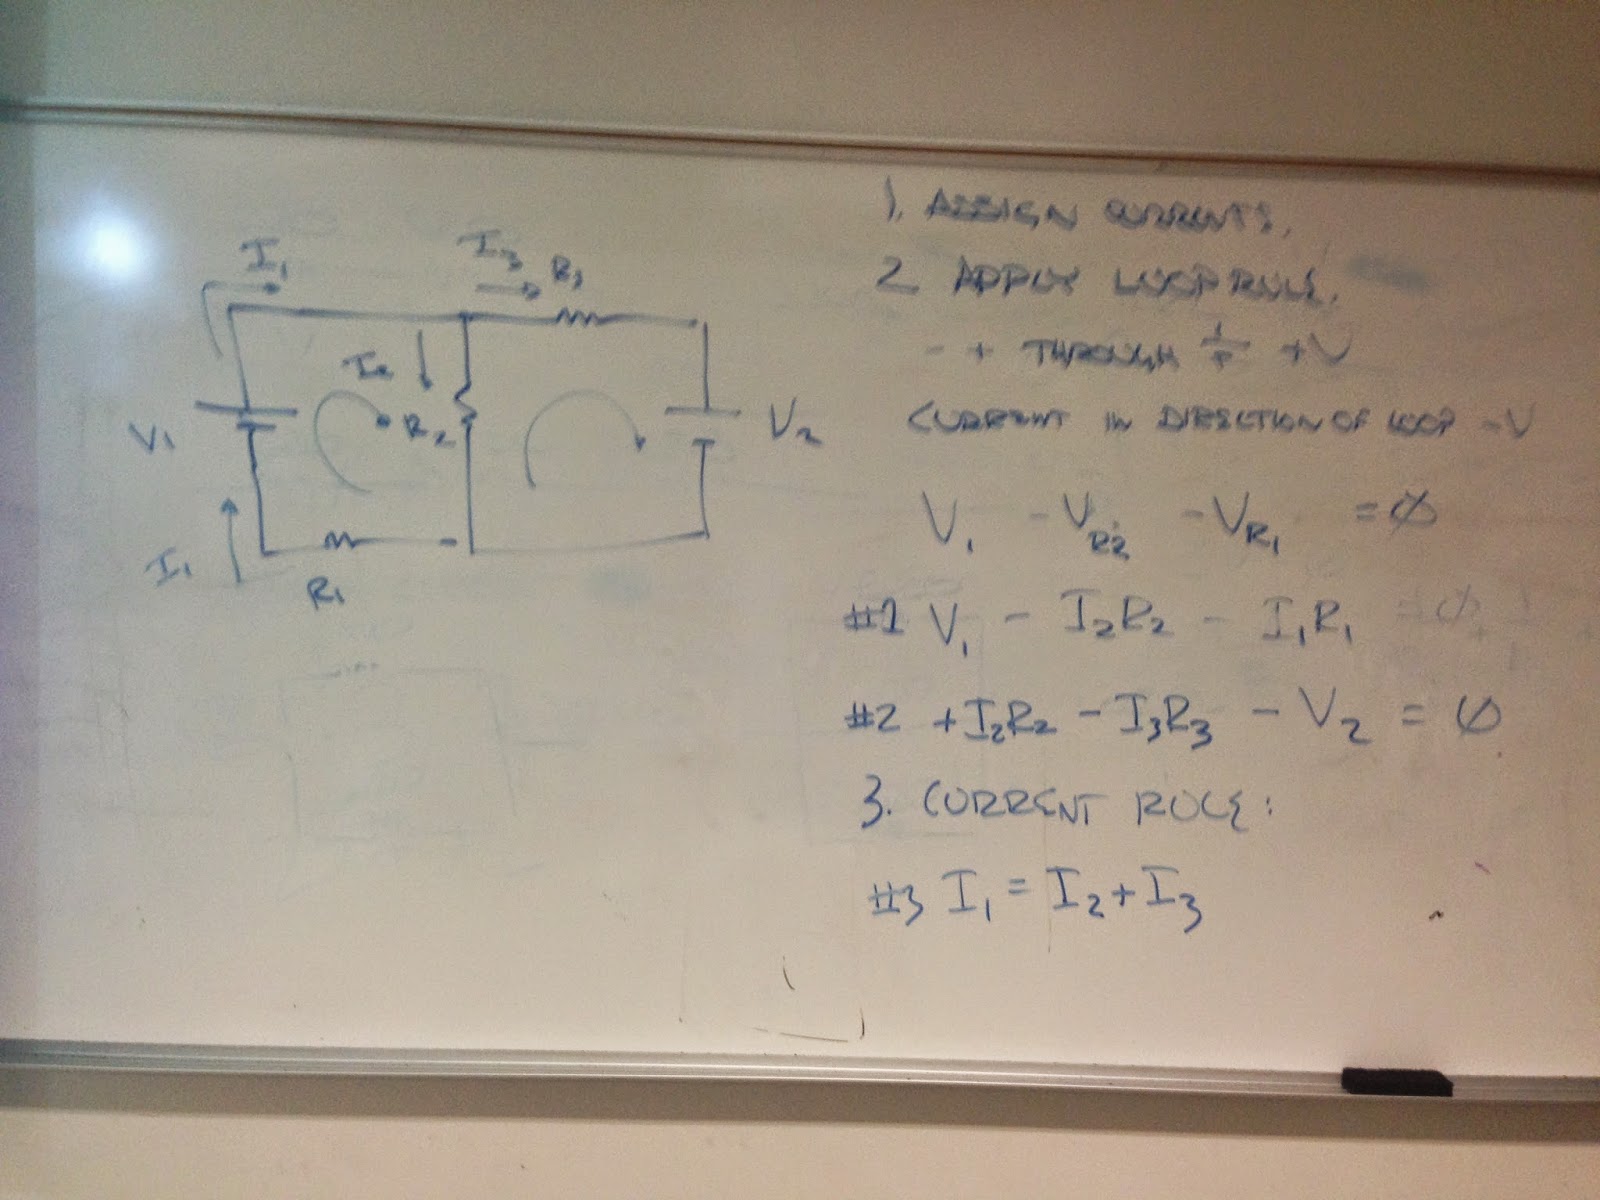 I₁
I₃ R₃
I₂
V₁ R₂ V₂
I₁
R₁
1. ASSIGN CURRENTS.
2 APPLY LOOP RULE.
- + THROUGH +V
CURRENT IN DIRECTION OF LOOP -V
V₁ - V_R2 - V_R1 = ∅
#1 V₁ - I₂R₂ - I₁R₁ = ∅
#2 +I₂R₂ - I₃R₃ - V₂ = ∅
3. CURRENT RULE:
#3 I₁ = I₂ + I₃